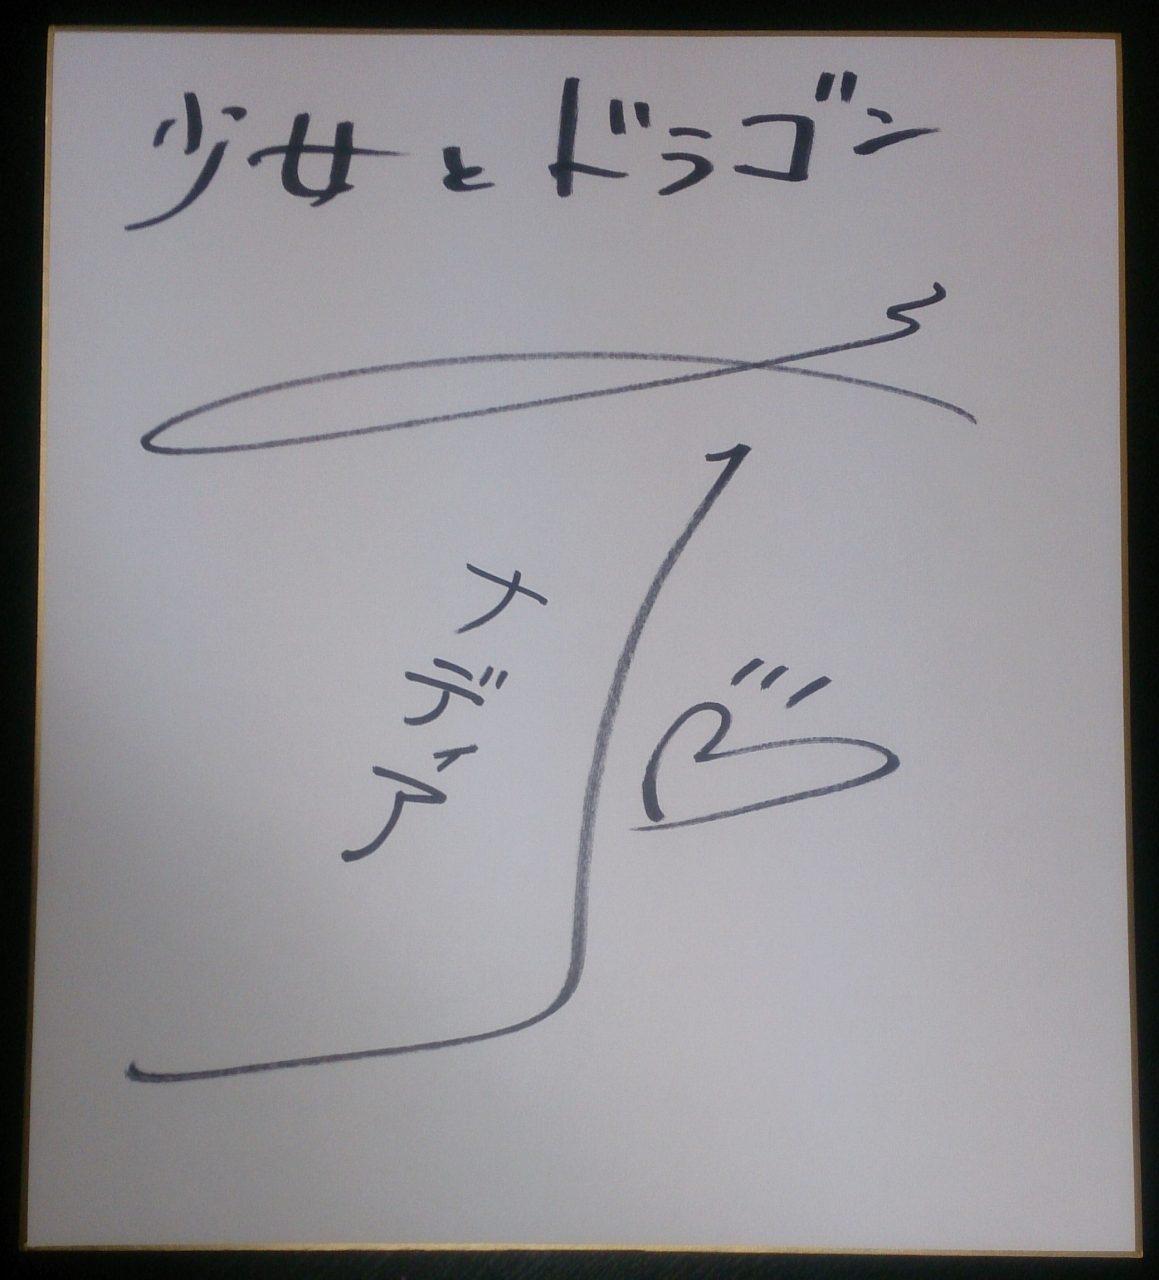 少女とドラゴン
ナディア